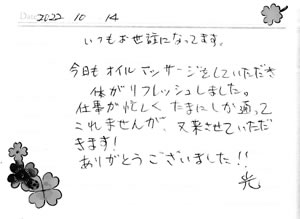 2022 10 14
いつもお世話になってます。
今日もオイルマッサージをしていただき
体がリフレッシュしました。
仕事が忙しく たまにしか通って
これませんが、又来させていただ
きます!
ありがとうございました!!
光